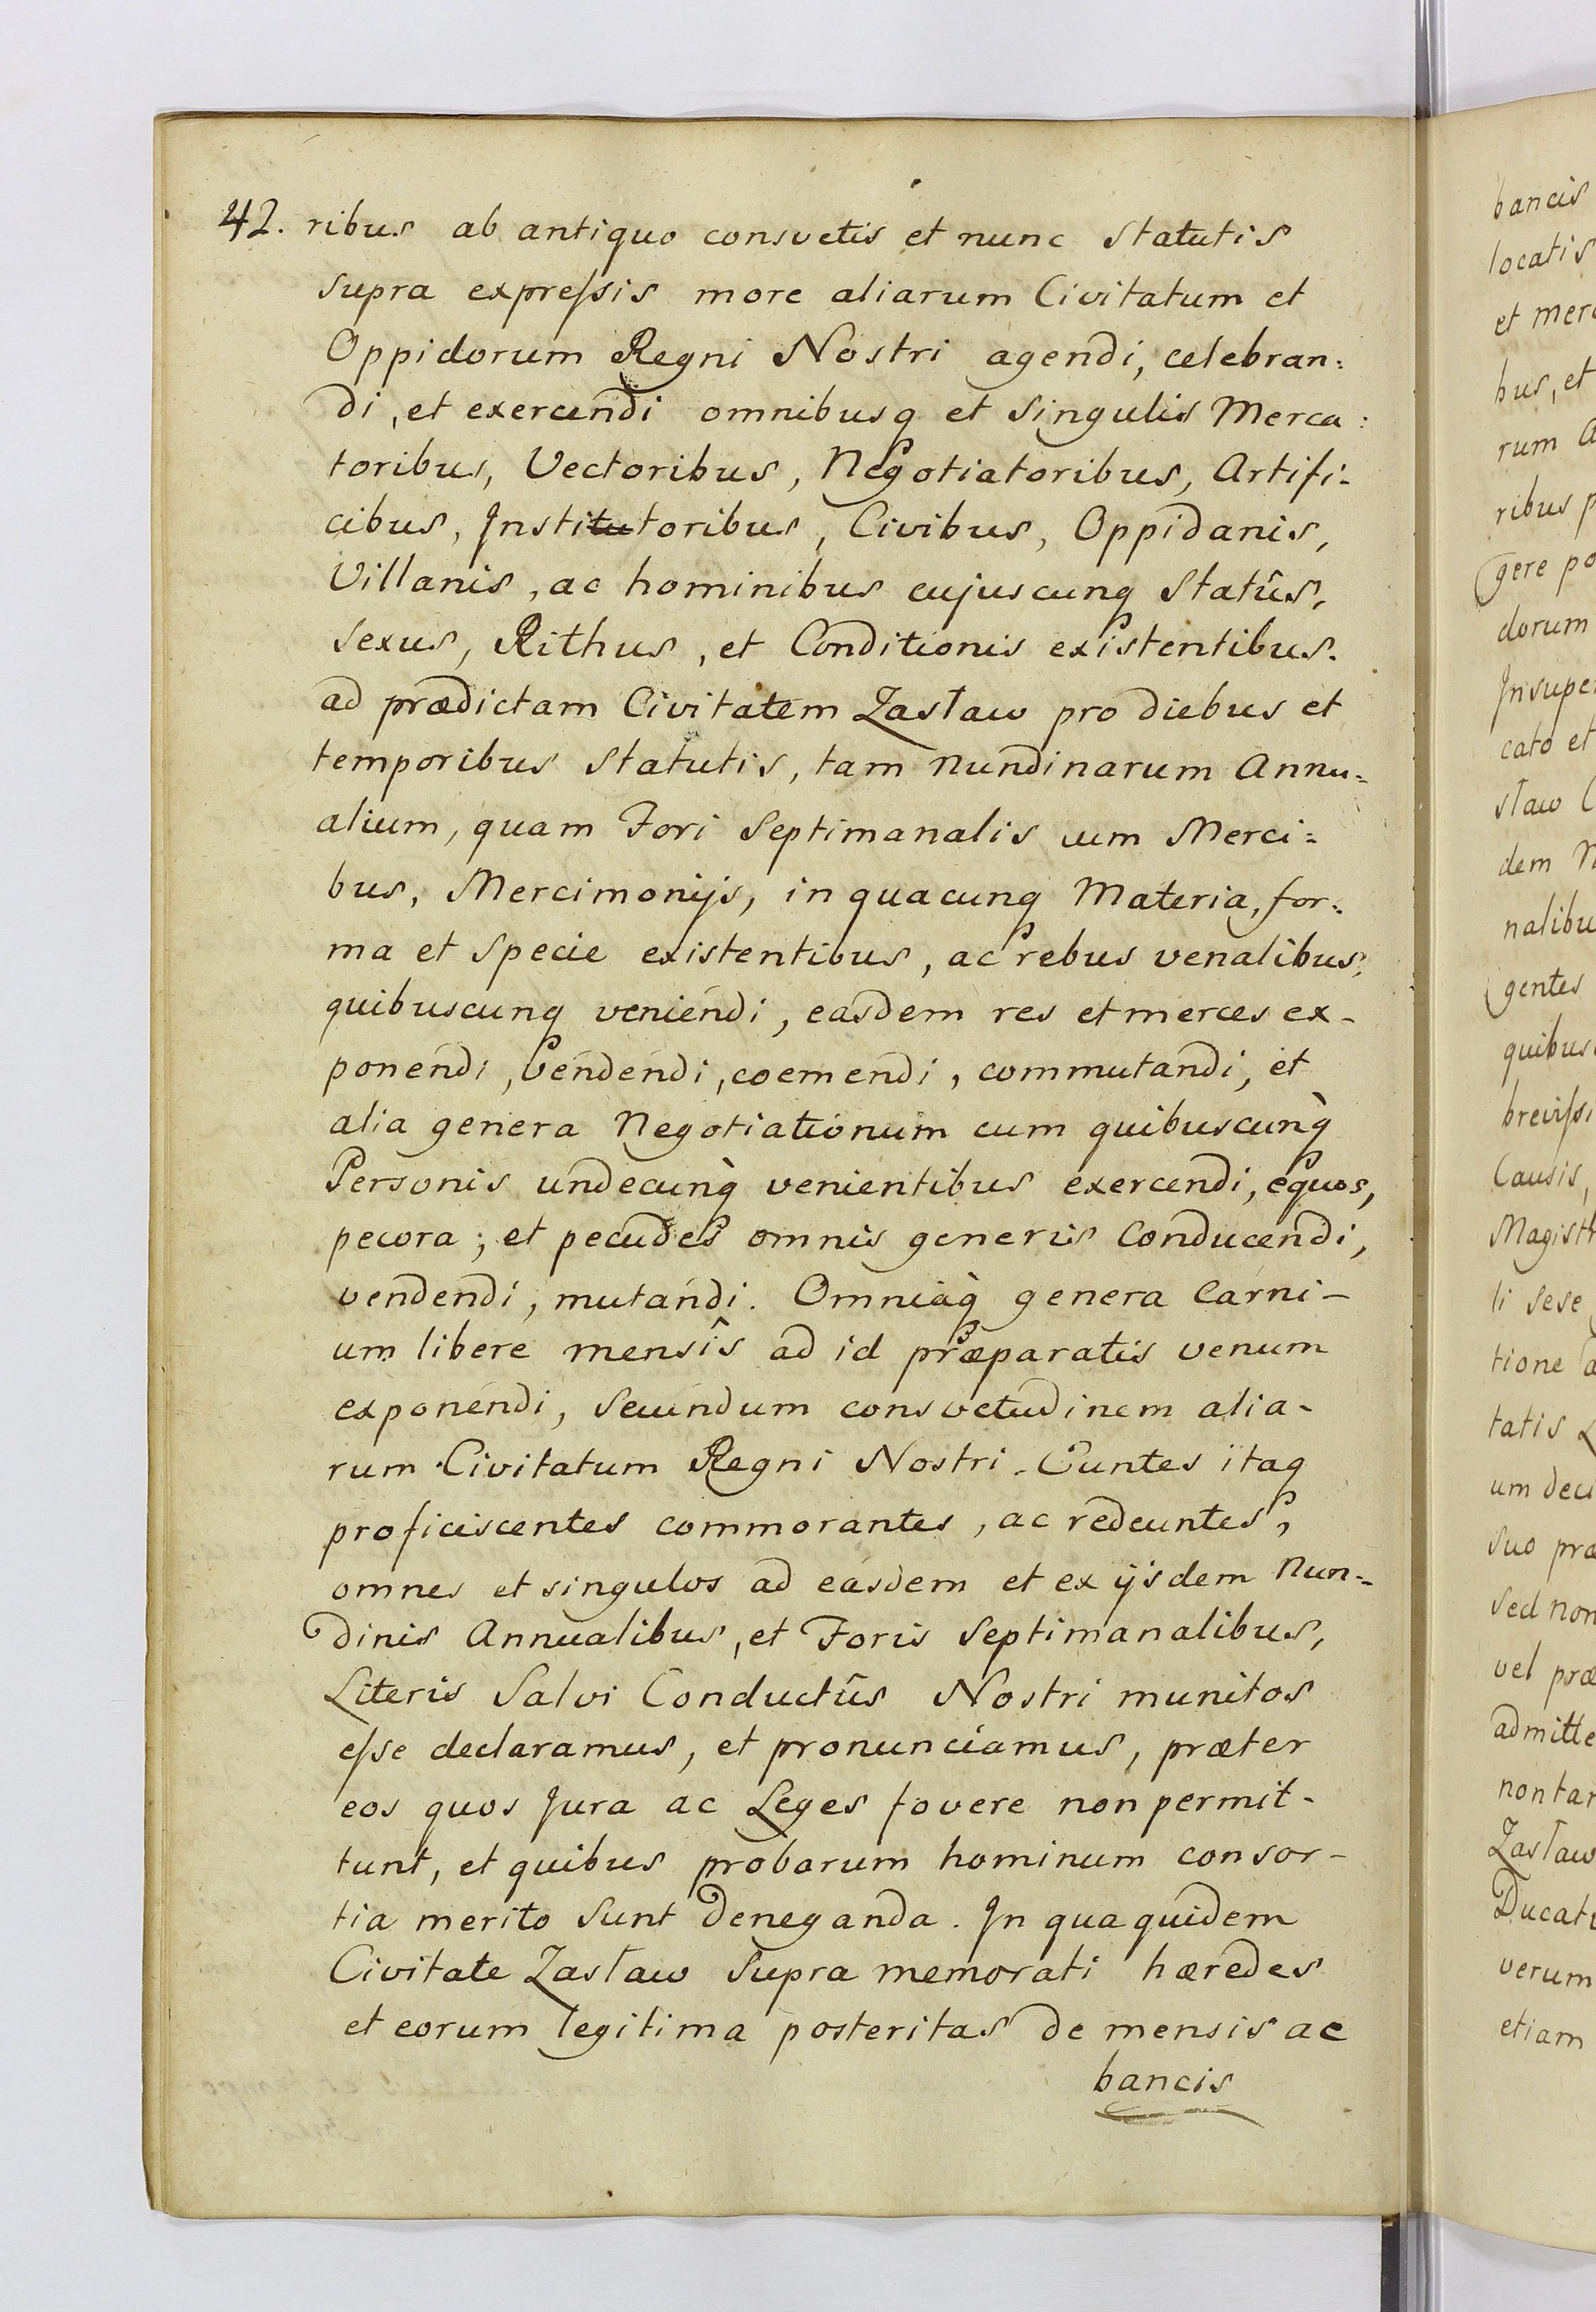 42. ribus ab antiquo consvetis et nunc Statutis
supra expreſsis more aliarum Civitatum et
Oppidorum Regni Nostri agendi, celebran:
di, et exercendi omnibusq et Singulis Merca:
toribus, Vectoribus, Negotiatoribus, Artifi-
cibus, Institutoribus, Civibus, Oppidanis,
Villanis, ac hominibus cujuscunq Statûs,
Sexus, Rithus, et Conditionis existentibus.
ad prædictam Civitatem Zasław pro diebus et
temporibus Statutis, tam Nundinarum Annu-
alium, quam Fori Septimanalis cum Merci=
bus, Mercimonijs, in quacunq Materia, for:
ma et Specie existentibus, ac rebus venalibus,
quibuscunq veniendi, easdem res et merces ex-
ponendi, vendendi, coemendi, commutandi, et
alia genera Negotiationum cum quibuscunq̀
Personis undecunq̀ venientibus exercendi, equos,
pecora; et pecudes omnis generis Conducendi,
vendendi, mutandi. Omniaq̀ genera Carni-
um libere mensîs ad id præparatis venum
exponendi, Secundum consvetudinem alia-
rum Civitatum Regni Nostri. Euntes itaq
proficiscentes commorantes, ac redeuntes,
omnes et singulos ad easdem et ex ijsdem Nun=
dinis Annualibus, et Foris Septimanalibus,
Literis Salvi Conductûs Nostri munitos
eſse declaramus, et pronunciamus, præter
eos quos Jura ac Leges fovere non permit-
tunt, et quibus proborum hominum consor-
tia merito Sunt Deneganda. In qua quidem
Civitate Zasław Supra memorati hæredes
et eorum legitima posteritas de mensis ac
bancis
bancis
locatis
et mer
bus, et
rum
ribus p
gere po
dorum
Insuper
cato et
sław C
dem N
nalibu
gentes
quibus
breviſsi
Causis,
Magist
li sese
tione a
tatis
um deci
suo præ
Sed non
vel præ
admitte
non tan
Zasław
Ducatu
verum
etiam